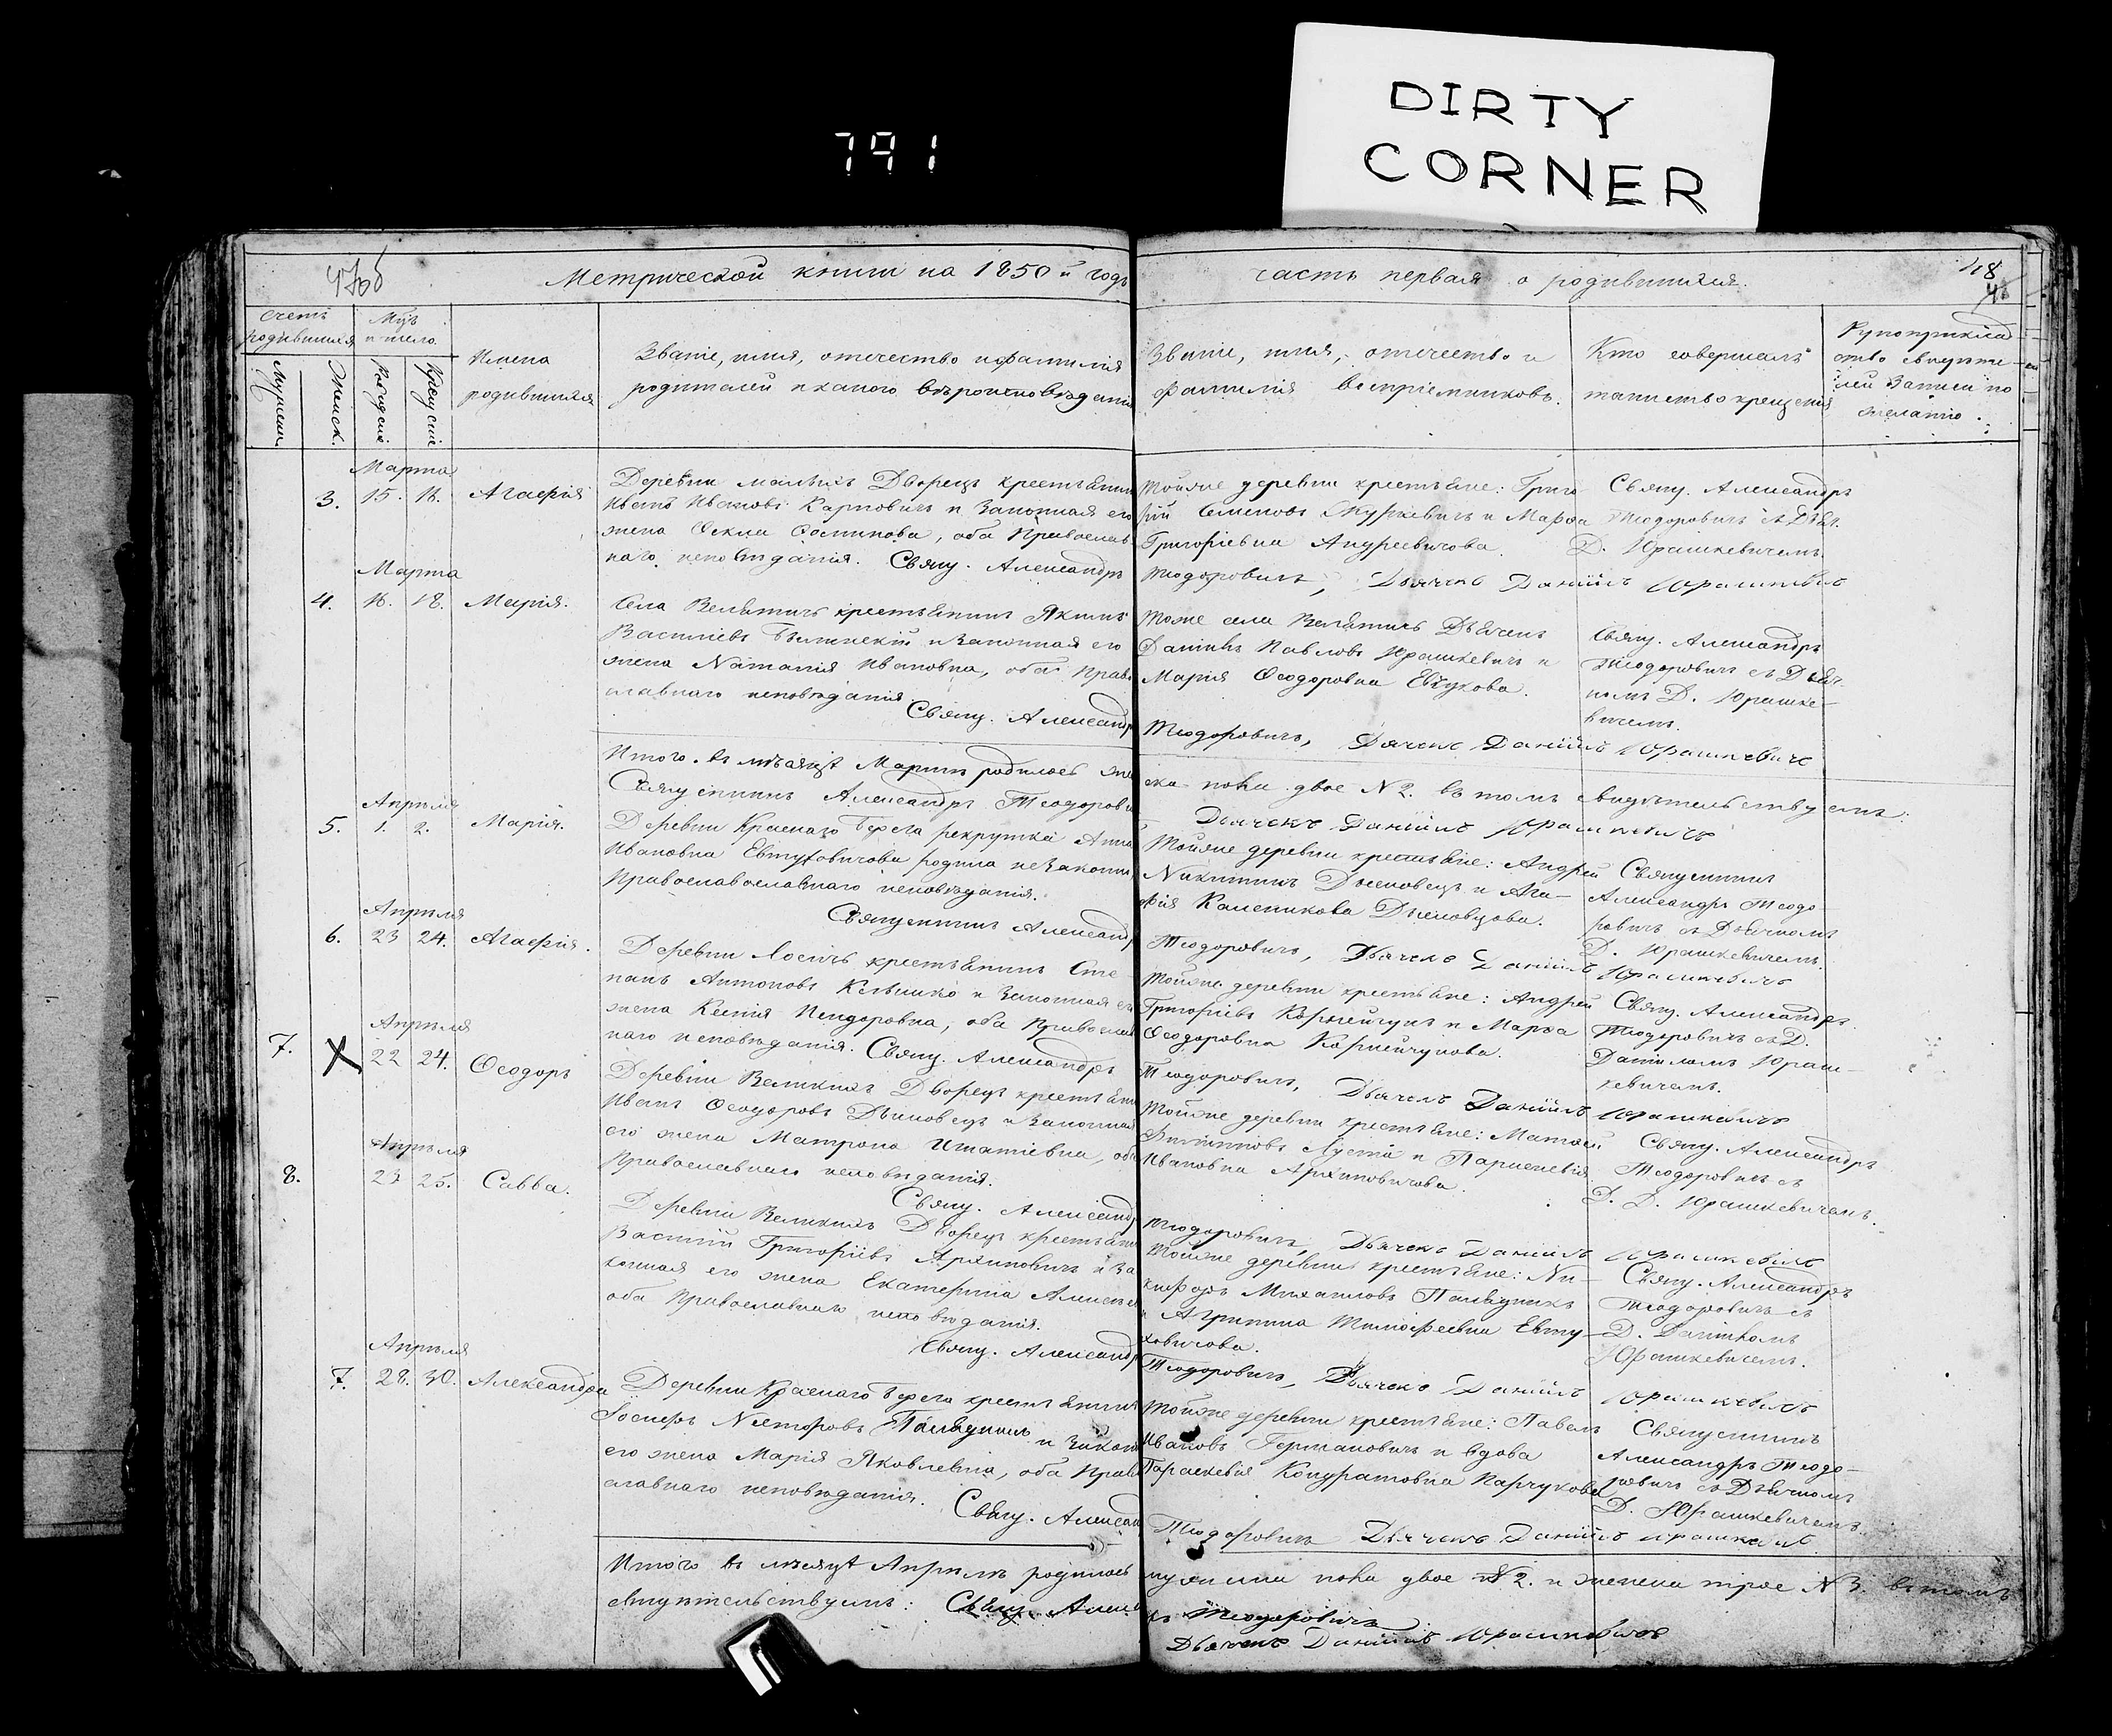 791
DIRTY
CORNER
Метрической книги на 1850й годъ
часть первая о родившихся.
48
счетъ родившихся
Мужеска
Женск.
Мцъ и число
Рожденія
Крещенія
Имена
родившихся
Званіе, имя, отечество и фамилія
родителей и какого вѣроисповѣданія
Званіе, имя, отчество и
фамилія воспріемниковъ.
Кто совершалъ
таинство крещенія
Рукоприклад
ство свидѣте
лей записи по
желанію.
Марта
3. 15. 16. Агафія
Деревни малыхъ Дворецъ крестьянинъ
Иванъ Ивановъ Карповичъ и законная его
жена Ѳекла, оба Православ
наго исповѣданія. Свящ. Александръ
Тойже деревни крестьяне: Григо
рій Семеновъ и Марѳа
Григоріевна Андреевичова.
Ѳеодоровичъ, Дьячекъ Даніилъ Юрашкевичъ
Свящ. Александръ
Ѳеодоровичъ съ Дьяч.
Д. Юрашкевичемъ.
Марта
4. 16. 18. Марія.
Села Велятичъ крестьянинъ Якимъ
Василіевъ и законная его
жена Наталія Ивановна, оба Право
славнаго исповѣданія.
Свящ. Александръ
Тоже села Велятичъ Дьячекъ
Даніилъ Павловъ Юрашкевичъ и
Марія Ѳеодоровна
Ѳеодоровичъ, Дячекъ Даніилъ Юрашкевичъ
Свящ. Александръ
Ѳеодоровичъ съ Дьяч-
комъ Д. Юрашке-
вичемъ.
Итого въ мѣсяцѣ Мартѣ родилось жен
ска пола двое №2. въ томъ свидѣтельствуемъ:
Священникъ Александръ Ѳеодорови
Дьячекъ Даніилъ Юрашкевичъ
Апрѣля
5. 1. 2. Марія.
Деревни Краснаго Берега рекрутка Анна
Ивановна Евтуховичова родила незаконно
Православославнаго исповѣданія.
Священникъ Александръ
Тойже деревни крестьяне: Андрей
Никитинъ и Ага-
фія
Ѳеодоровичъ, Дьячекъ Даніилъ Юрашкевичъ
Священникъ
Александръ Ѳеодо-
ровичъ съ Дьячкомъ
Д. Юрашкевичемъ.
Апрѣля
6. 23 24. Агафія.
Деревни Лосичъ крестьянинъ Сте
панъ Антоновъ и законная его
жена Ксенія, оба Православ
наго исповѣданія. Свящ. Александръ
Тойже деревни крестьяне: Андрей
Григоріевъ Корнейчукъ и Марѳа
Ѳеодоровна Корнейчукова.
Ѳеодоровичъ, Дьячекъ Даніилъ Юрашкевичъ
Свящ. Александръ
Ѳеодоровичъ съ Д.
Даніиломъ Юраш-
кевичемъ.
Апрѣля
7. X 22 24. Ѳеодоръ
Деревни Великихъ Дворецъ крестьянинъ
Иванъ Ѳеодоровъ и законная
его жена Матрона Игнатіевна, оба
Православнаго исповѣданія.
Свящ. Александръ
Тойже деревни крестьяне: Матѳей
Филипповъ и Параскевія
Ивановна Архиповичова.
Ѳеодоровичъ, Дьячекъ Даніилъ Юрашкевичъ
Свящ. Александръ
Ѳеодоровичъ съ
Д. Д. Юрашкевичемъ.
Апрѣля
8. 23 25. Савва.
Деревни Великихъ Дворецъ крестьянинъ
Василій Григоріевъ Архиповичъ и за
конная его жена Екатерина
оба Православнаго исповѣданія.
Свящ. Александръ
Тойже деревни крестьяне: Ни-
кифоръ Михаиловъ Палѣшукъ
и Агрипина Тимофеевна Евту-
ховичова.
Ѳеодоровичъ, Дьячекъ Даніилъ Юрашкевичъ
Свящ. Александръ
Ѳеодоровичъ съ
Д. Даніиломъ
Юрашкевичемъ.
Апрѣля
7. 28. 30. Александра
Деревни Краснаго Берега крестьянинъ
Іосифъ Несторовъ и закон
его жена Марія Яковлевна, оба Право
славнаго исповѣданія. Свящ. Александ
Тойже деревни крестьяне: Павелъ
Ивановъ Германовичъ и вдова
Параскевія Кондратовна
Ѳеодоровичъ Дьячекъ Даніилъ Юрашкевичъ
Священникъ
Александръ Ѳеодо-
ровичъ съ Дьячкомъ
Д. Юрашкевичемъ.
Итого въ мѣсяцѣ Апрѣлѣ родилось
мужеска пола двое №2. и женска трое №3. въ томъ
свидѣтельствуемъ: Свящ. Алексан
ръ Ѳеодоровичъ
Дьячекъ Даніилъ Юрашкевичъ